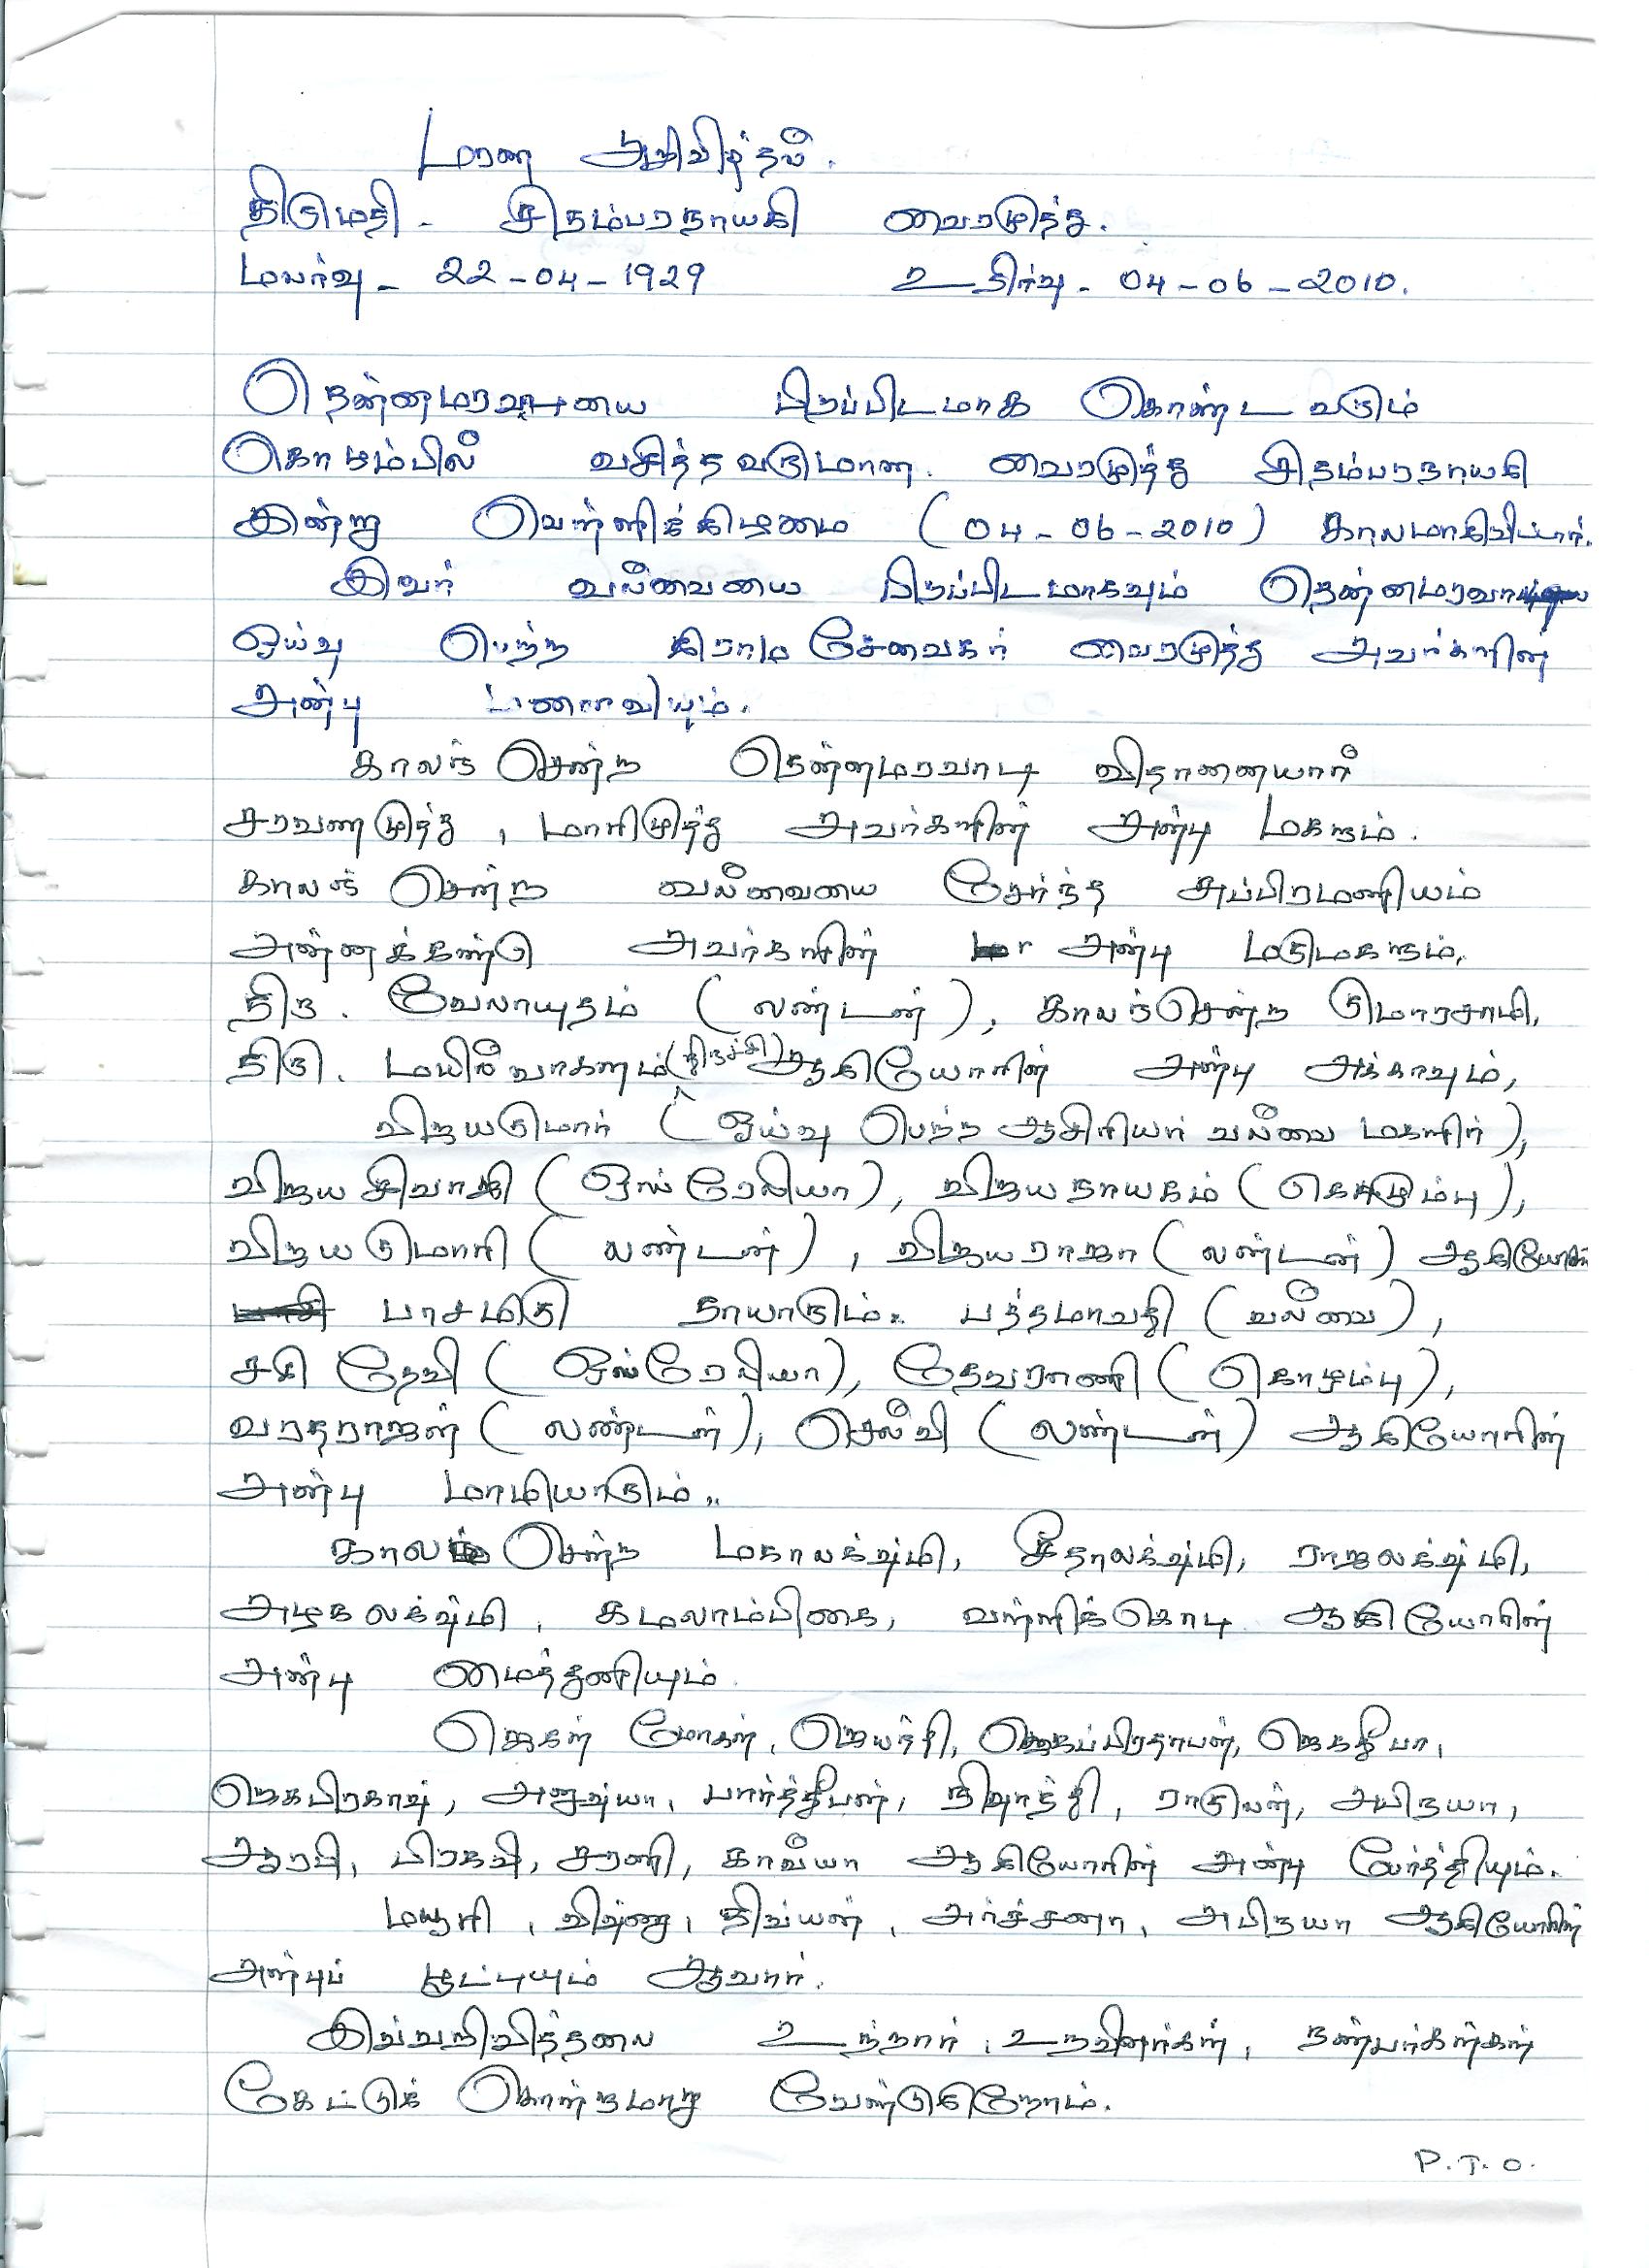 மரண அறிவித்தல்.
திருமதி. சிதம்பரநாயகி வைரமுத்து.
மலர்வு - 22-04-1929 உதிர்வு - 04-06-2010.
தென்னமரவாடியை பிறப்பிடமாக கொண்டவரும்
கொழும்பில் வசித்தவருமான வைரமுத்து சிதம்பரநாயகி
இன்று வெள்ளிக்கிழமை (04-06-2010) காலமாகிவிட்டார்.
இவர் வல்வையை பிறப்பிடமாகவும் தென்னமரவாடி
ஓய்வு பெற்ற கிராம சேவகர் வைரமுத்து அவர்களின்
அன்பு மனைவியும்.
காலஞ் சென்ற தென்னமரவாடி விதானையார்
சரவணமுத்து, மாரிமுத்து அவர்களின் அன்பு மகளும்.
காலஞ் சென்ற வல்வையை சேர்ந்த சுப்பிரமணியம்
அன்னக்கண்டு அவர்களின் அன்பு மருமகளும்,
திரு. வேலாயுதம் (லண்டன்), காலஞ்சென்ற குமாரசாமி,
திரு. மயில்வாகனம் (திருச்சி) ஆகியோரின் அன்பு அக்காவும்,
விஜயகுமார் (ஓய்வு பெற்ற ஆசிரியர் வல்வை மகளிர்),
விஜயசிவாஜி (ஒஸ்ரேலியா), விஜயநாயகம் (கொழும்பு),
விஜயகுமாரி (லண்டன்), விஜயராஜா (லண்டன்) ஆகியோரின்
பாசமிகு தாயாரும்.. பத்தமாவதி (வல்வை),
சசி தேவி (ஒஸ்ரேலியா), தேவராணி (கொழும்பு),
வரதராஜன் (லண்டன்), செல்வி (லண்டன்) ஆகியோரின்
அன்பு மாமியாரும்..
காலஞ் சென்ற மகாலக்ஷ்மி, சீதாலக்ஷ்மி, ராஜலக்ஷ்மி,
அழகலக்ஷ்மி, கமலாம்பிகை, வள்ளிக்கொடி ஆகியோரின்
அன்பு மைத்துனியும்
ஜெகன் மோகன், ஜெயந்தி, ஜெகப்பிரதாபன், ஜெகதீபா,
ஜெகபிரகாஷ், அனுஷ்யா, பார்த்தீபன், நிஷாந்தி, ராகுலன், அபிநயா,
ஆரபி, பிரகவி, சரணி, காவியா ஆகியோரின் அன்பு பேர்த்தியும்.
மயூரி, விஷ்ணு, திவ்யன், அர்ச்சனா, அபிநயா ஆகியோரின்
அன்புப் பூட்டியும் ஆவார்.
இவ்வறிவித்தலை உற்றார், உறவினர்கள், நண்பர்கள்கள்
கேட்டுக் கொள்ளுமாறு வேண்டுகிறோம்.
P.T.O.